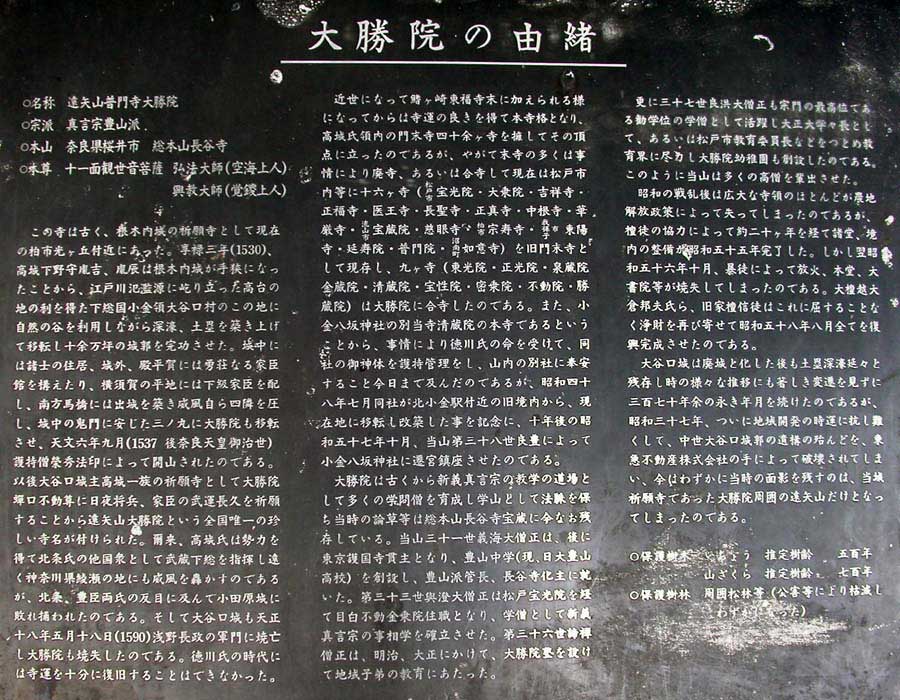 大勝院の由緒
○名称　遠矢山普門寺大勝院
○宗派　真言宗豊山派
○本山　奈良県桜井市　総本山長谷寺
○本尊　十一面観世音菩薩　弘法大師(空海上人)
興教大師(覚鑁上人)
この寺は古く、根木内城の祈願寺として現在
の柏市光ヶ丘付近にあった。享禄三年(1530)、
高城下野守胤吉、胤辰は根木内城が手狭になっ
たことから、江戸川氾濫源に屹り立った高台の
地の利を得た下総国小金領大谷口村のこの地に
自然の谷を利用しながら深濠、土塁を築き上げ
て移転し十余万坪の城郭を完功させた。城中に
は諸士の住居、城外、殿平賀には勇壮なる家臣
館を構えたり、横須賀の平地には下級家臣を配
し、南方馬橋には出城を築き威風自ら四隣を圧
し、城中の鬼門に安じた三ノ丸に大勝院も移転
させ、天文六年九月(1537 後奈良天皇御治世)
護持僧栄秀法印によって開山されたのである。
以後大谷口城主高城一族の祈願寺として大勝院
蟬口不動尊に日夜将兵、家臣の武運長久を祈願
することから遠矢山大勝院という全国唯一の珍
しい寺名が付けられた。爾来、高城氏は勢力を
得て北条氏の他国衆として武蔵下総を指揮し遠
く神奈川県綾瀬の地にも威風を轟かすのである
が、北条、豊臣両氏の反目に及んで小田原城に
敗れ捕われたのである。そして大谷口城も天正
十八年五月十八日(1590)浅野長政の軍門に境亡
し大勝院も境失したのである。徳川氏の時代に
は寺運を十分に復旧することはできなかった。
近世になって鰭ヶ崎東福寺末に加えられる様
になってからは寺運の良きを得て本寺格となり、
高城氏領内の門末寺四十余ヶ寺を擁してその頂
点に立ったのであるが、やがて末寺の多くは事
情により廃寺、あるいは合寺して現在は松戸市
内等に十六ヶ寺(松戸市 宝光院・大乗院・吉祥寺・
正福寺・医王寺・長聖寺・正真寺・中根寺・華
厳寺・流山市 宝蔵院・慈眼寺・柏市 宗寿寺・我孫子市 東陽
寺・延寿院・普門院・沼南町 如意寺)を旧門末寺と
して現存し、九ヶ寺(東光院・正光院・泉蔵院
金蔵院・清蔵院・宝性院・密乗院・不動院・勝
蔵院)は大勝院に合寺したのである。また、小
金八坂神社の別当寺清蔵院の本寺であるという
ことから、事情により徳川氏の命を受けて、同
社の御神体を護持管理をし、山内の別社に奉安
すること今日まで及んだのであるが、昭和四十
八年七月同社が北小金駅付近の旧境内から、現
在地に移転し改築した事を記念に、十年後の昭
和五十七年十月、当山第三十八世良豊によって
小金八坂神社に遷宮鎮座させたのである。
大勝院は古くから新義真言宗の教学の道場と
して多くの学問僧を育成し学山として法脈を保
ち当時の論草等は総本山長谷寺宝蔵に今なお残
存している。当山三十一世義海大僧正は、後に
東京護国寺貫主となり、豊山中学(現、日大豊山
高校)を創設し、豊山派管長、長谷寺化主に就
いた。第三十三世興澄大僧正は松戸宝光院を経
て目白不動金乗院住職となり、学僧として新義
真言宗の事相学を確立させた。第三十六世諦禅
僧正は、明治、大正にかけて、大勝院塾を設け
て地域子弟の教育にあたった。
更に三十七世良洪大僧正も宗門の最高位であ
る勤学位の学僧として活躍し大正大学々長とし
て、あるいは松戸市教育委員長などをつとめ教
育界に尽力し大勝院幼稚園も創設したのである。
このように当山は多くの高僧を輩出させた。
昭和の戦乱後は広大な寺領のほとんどが農地
解放政策によって失ってしまったのであるが、
檀徒の協力によって約二十ヶ年を経て諸堂、境
内の整備が昭和五十五年完了した。しかし翌昭
和五十六年十月、暴徒によって放火、本堂、大
書院等が境失してしまったのである。大檀越大
倉邦夫氏ら、旧家檀信徒はこれに屈することな
く浄財を再び寄せて昭和五十八年八月全てを復
興完成させたのである。
大谷口城は廃城と化した後も土塁深濠延々と
残存し時の様々な推移にも著しき変遷を見ずに
三百七十年余の永き年月を続けたのであるが、
昭和三十七年、ついに地域開発の時運に抗し難
くして、中世大谷口城郭の遺構の殆んどを、東
急不動産株式会社の手によって破壊されてしま
い、今はわずかに当時の面影を残すのは、当城
祈願寺であった大勝院周囲の遠矢山だけとなっ
てしまったのである。
○保護樹木　ちょう　推定樹齢　五百年
山ざくら　推定樹齢　七百年
○保護樹林　周囲松林等(公害等により枯滅し
わずかった)